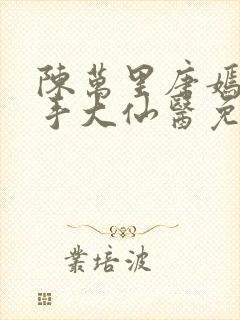 陳萬里唐嫣
手大仙醫免
業培波